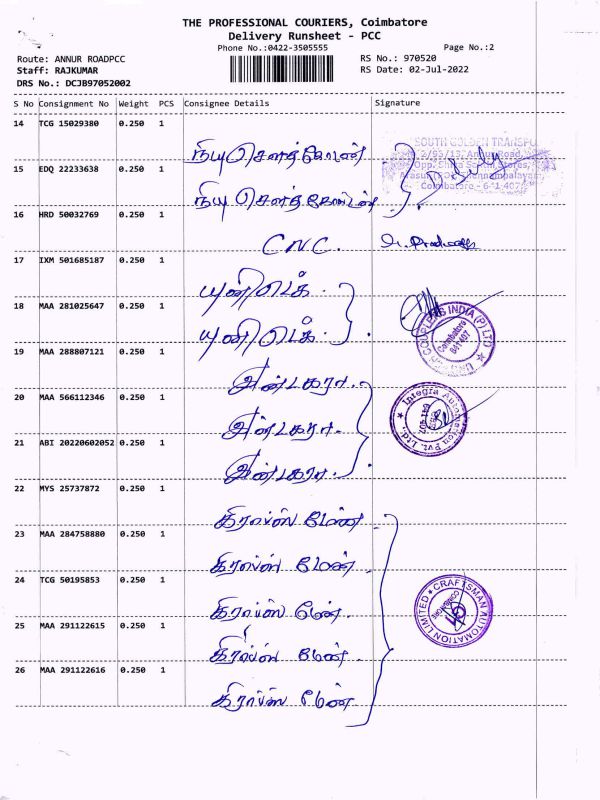 THE PROFESSIONAL COURIERS, Coimbatore
Delivery Runsheet - PCC
Phone No.:0422-3505555
Page No.:2
Route: ANNUR ROADPCC
RS No.: 970520
Staff: RAJKUMAR
RS Date: 02-Jul-2022
DRS No.: DCJB97052002
S No Consignment No Weight PCS Consignee Details Signature
14 TCG 15029380 0.250 1
நியு சௌத்கோல்டன்
SOUTH GOLDEN TRANSPO
15 EDQ 22233638 0.250 1
நியு சௌத்கோல்டன்
Coimbatore - 641 407
16 HRD 50032769 0.250 1
C.N.C.
17 IXM 501685187 0.250 1
யுனிடெக்.
18 MAA 281025647 0.250 1
யுனிடெக்.
COUPLERS INDIA (P) LTD
Coimbatore
641407
19 MAA 288807121 0.250 1
இன்டகரா.
20 MAA 566112346 0.250 1
இன்டகரா.
Integra Automation Pvt. Ltd.
641 407
21 ABI 20220602052 0.250 1
இன்டகரா.
22 MYS 25737872 0.250 1
கிராப்ஸ் மேன்.
23 MAA 284758880 0.250 1
கிராப்ஸ் மேன்.
24 TCG 50195853 0.250 1
கிராப்ஸ் மேன்.
CRAFTSMAN AUTOMATION LIMITED
25 MAA 291122615 0.250 1
கிராப்ஸ் மேன்.
26 MAA 291122616 0.250 1
கிராப்ஸ் மேன்.